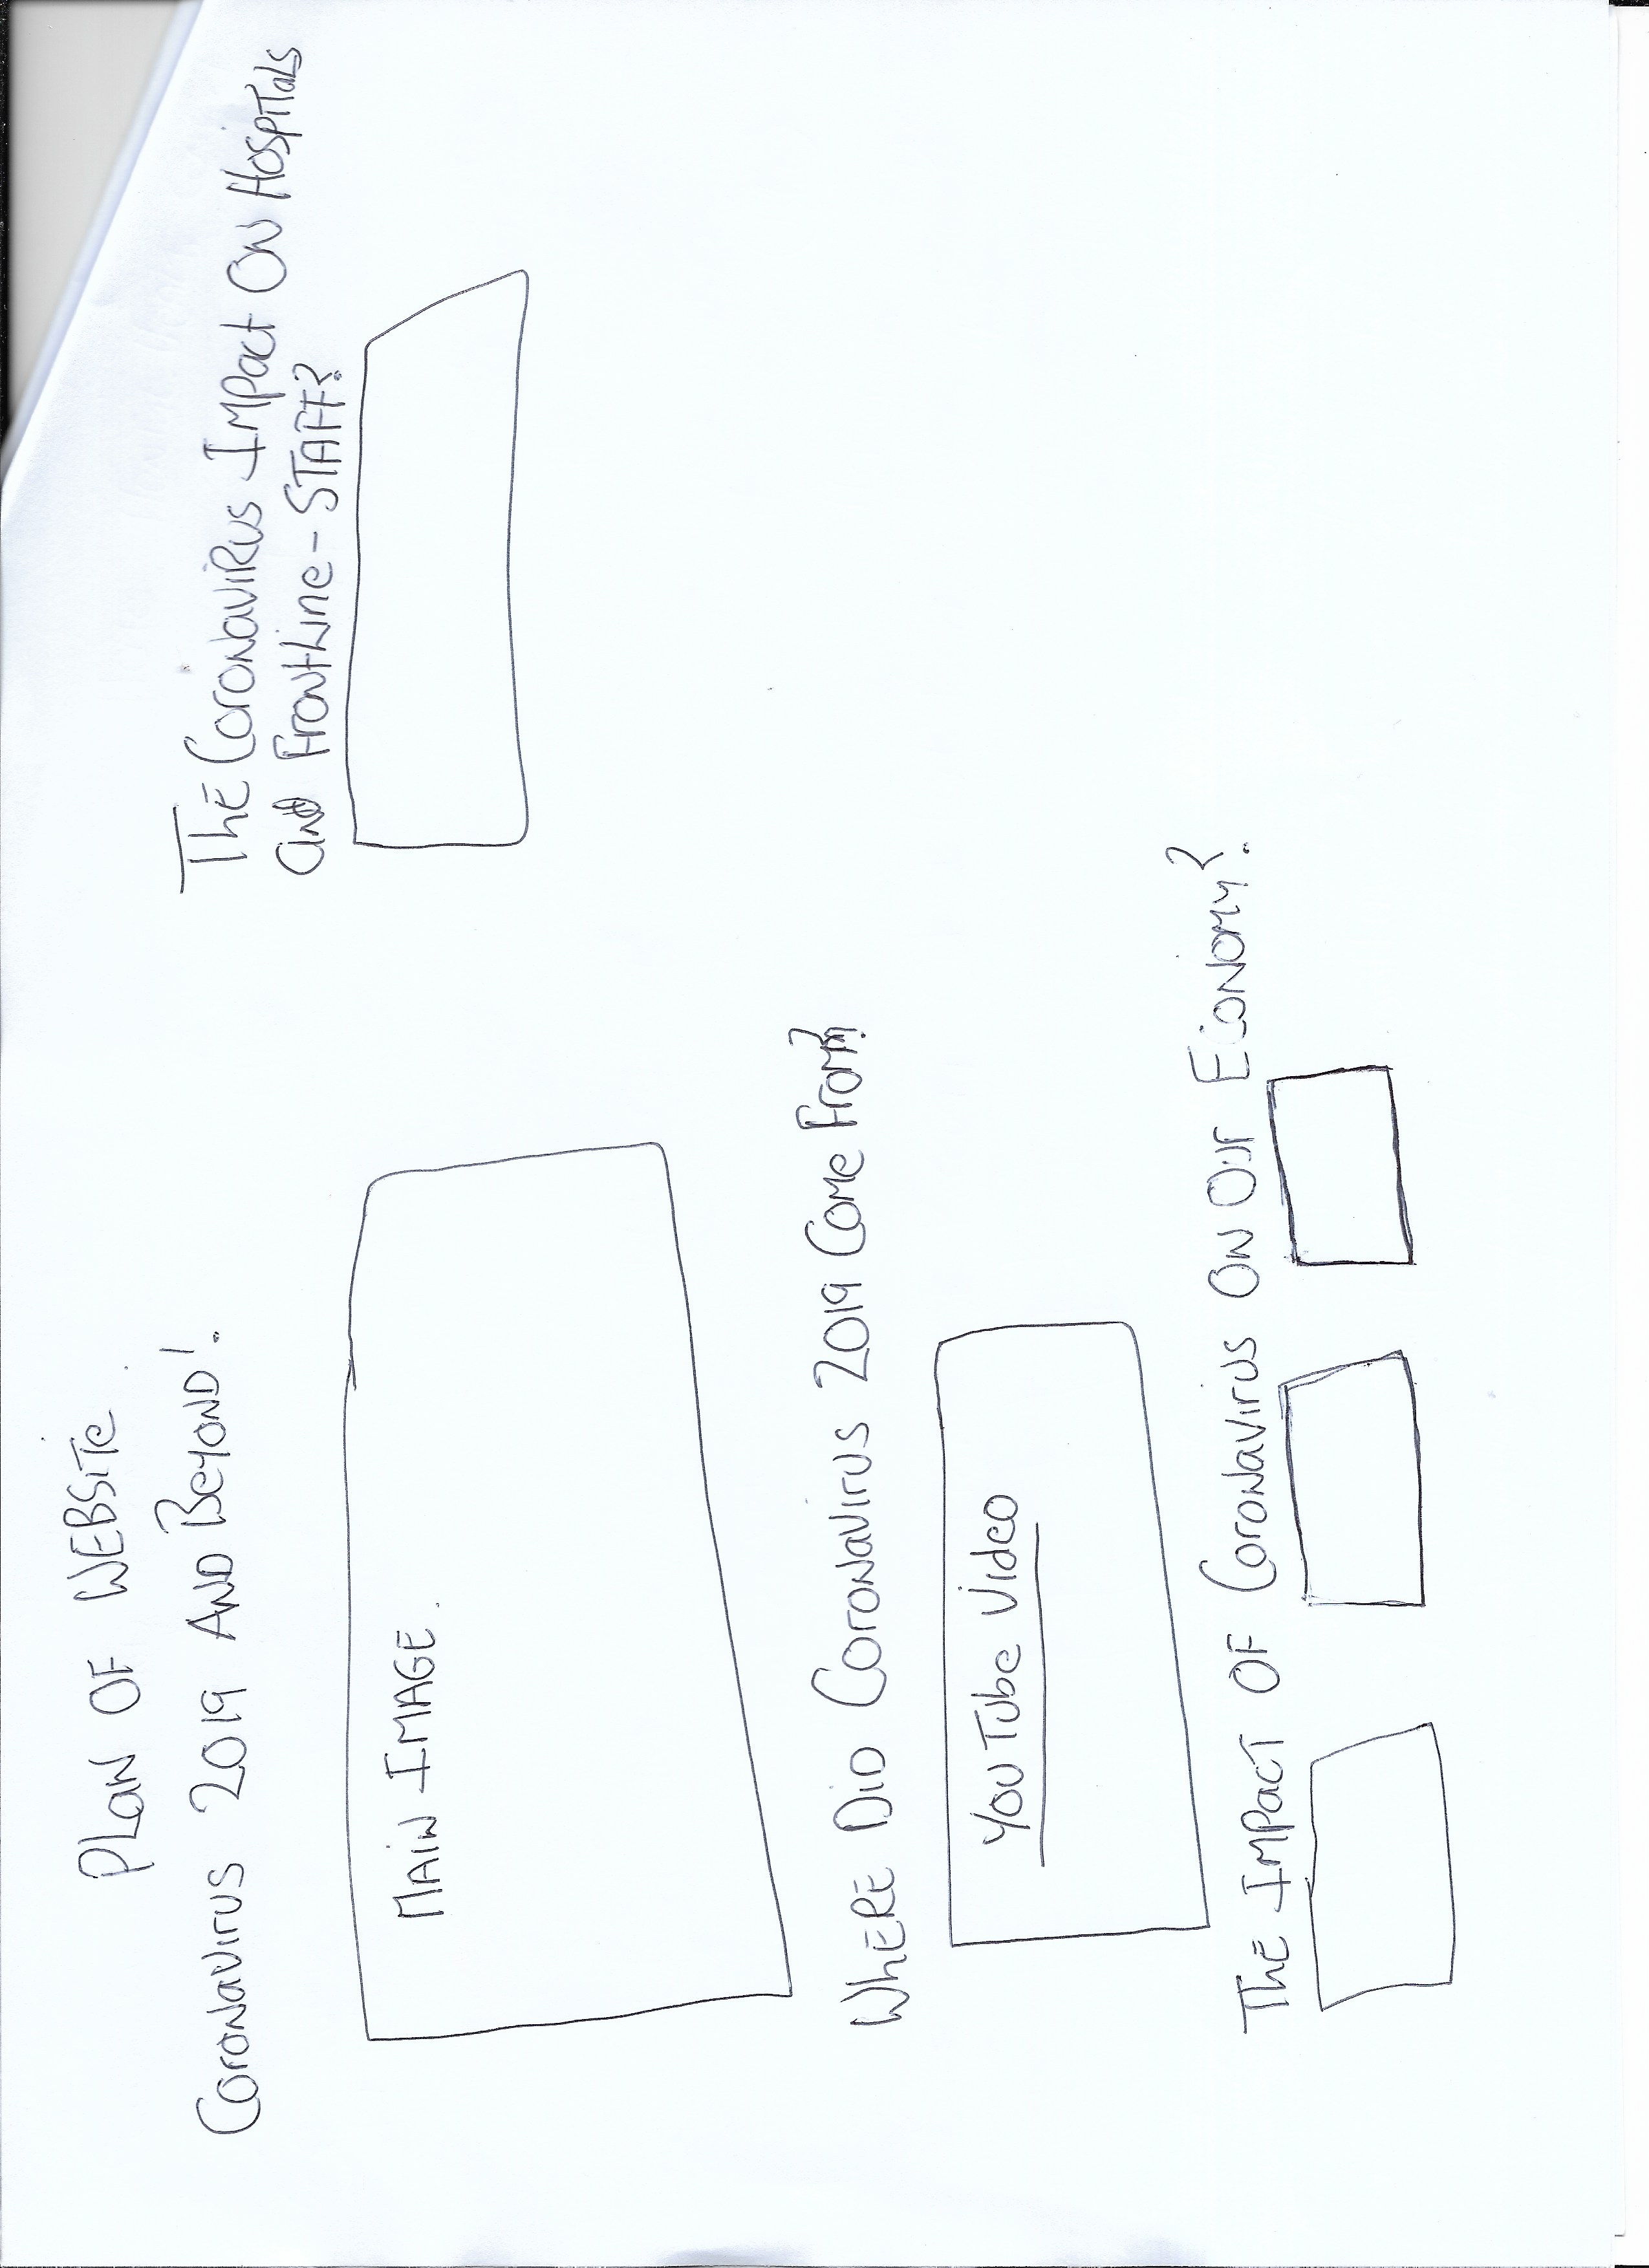 PLAN OF WEBSITE.
CORONAVIRUS 2019 AND BEYOND!
MAIN IMAGE.
WHERE DID CORONAVIRUS 2019 COME FROM?
YOUTUBE VIDEO
THE IMPACT OF CORONAVIRUS ON OUR ECONOMY?
THE CORONAVIRUS IMPACT ON HOSPITALS
AND FRONTLINE-STAFF?